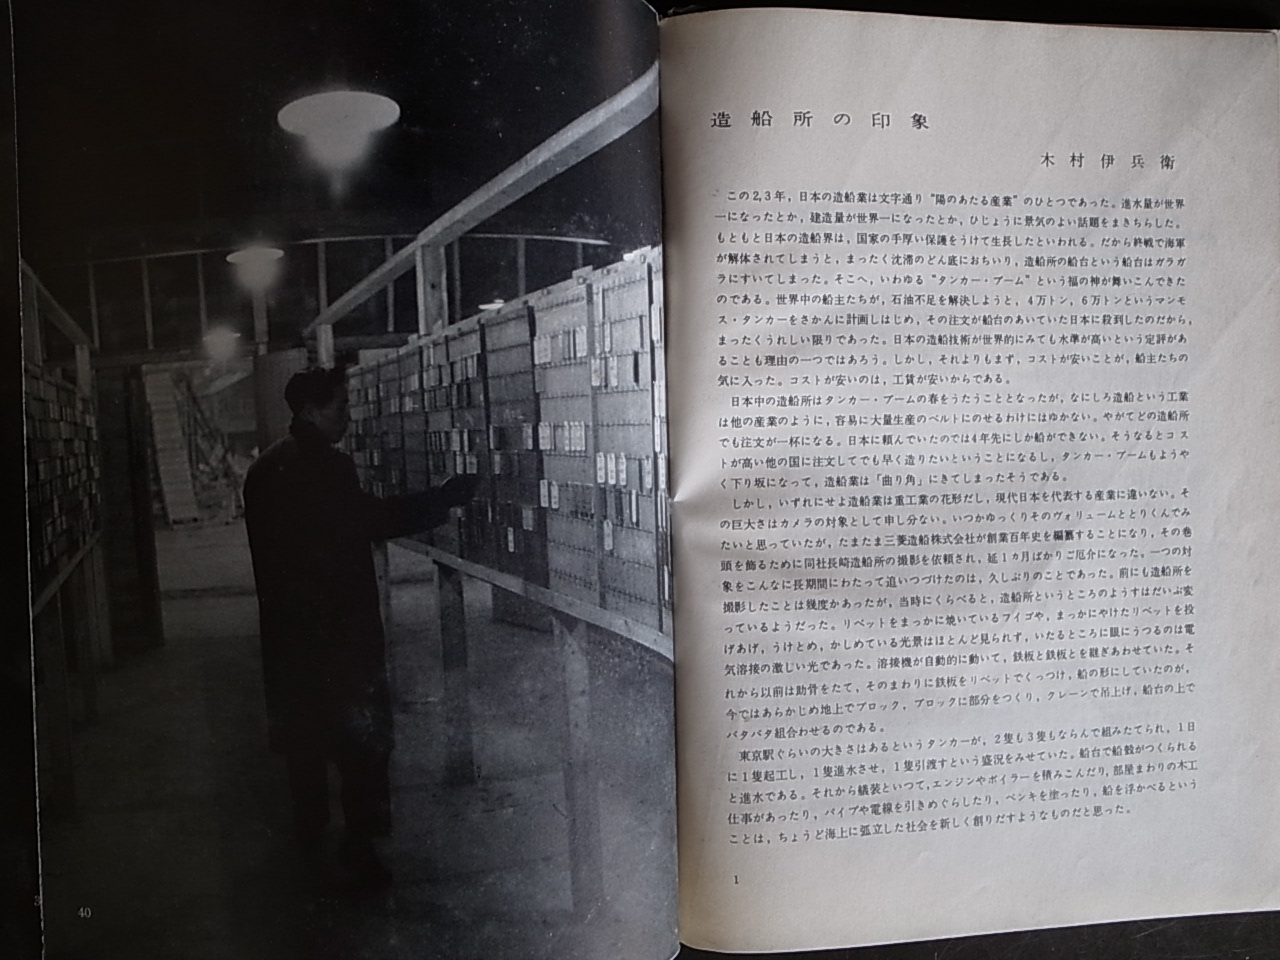 造船所の印象
木村伊兵衛
この2,3年，日本の造船業は文字通り“陽のあたる産業”のひとつであった。進水量が世界
一になったとか，建造量が世界一になったとか，ひじょうに景気のよい話題をまきちらした。
もともと日本の造船界は，国家の手厚い保護をうけて生長したといわれる。だから終戦で海軍
が解体されてしまうと，まったく沈滞のどん底におちいり，造船所の船台という船台はガラガ
ラにすいてしまった。そこへ，いわゆる“タンカー・ブーム”という福の神が舞いこんできた
のである。世界中の船主たちが，石油不足を解決しようと，4万トン，6万トンというマンモ
ス・タンカーをさかんに計画しはじめ，その注文が船台のあいていた日本に殺到したのだから，
まったくうれしい限りであった。日本の造船技術が世界的にみても水準が高いという定評があ
ることも理由の一つではあろう。しかし，それよりもまず，コストが安いことが，船主たちの
気に入った。コストが安いのは，工賃が安いからである。
日本中の造船所はタンカー・ブームの春をうたうこととなったが，なにしろ造船という工業
は他の産業のように，容易に大量生産のベルトにのせるわけにはゆかない。やがてどの造船所
でも注文が一杯になる。日本に頼んでいたのでは4年先にしか船ができない。そうなるとコス
トが高い他の国に注文してでも早く造りたいということになるし，タンカー・ブームもようや
く下り坂になって，造船業は「曲り角」にきてしまったそうである。
しかし，いずれにせよ造船業は重工業の花形だし，現代日本を代表する産業に違いない。そ
の巨大さはカメラの対象として申し分ない。いつかゆっくりそのヴォリュームととりくんでみ
たいと思っていたが，たまたま三菱造船株式会社が創業百年史を編纂することになり，その巻
頭を飾るために同社長崎造船所の撮影を依頼され，延1ヵ月ばかりご厄介になった。一つの対
象をこんなに長期間にわたって追いつづけたのは，久しぶりのことであった。前にも造船所を
撮影したことは幾度かあったが，当時にくらべると，造船所というところのようすはだいぶ変
っているようだった。リベットをまっかに焼いているフイゴや，まっかにやけたリベットを投
げあげ，うけとめ，かしめている光景はほとんど見られず，いたるところに眼にうつるのは電
気溶接の激しい光であった。溶接機が自動的に動いて，鉄板と鉄板とを継ぎあわせていた。そ
れから以前は肋骨をたて，そのまわりに鉄板をリベットでくっつけ，船の形にしていたのが，
今ではあらかじめ地上でブロック，ブロックに部分をつくり，クレーンで吊上げ，船台の上で
バタバタ組合わせるのである。
東京駅ぐらいの大きさはあるというタンカーが，2隻も3隻もならんで組みたてられ，1日
に1隻起工し，1隻進水させ，1隻引渡すという盛況をみせていた。船台で船殻がつくられる
と進水である。それから艤装といつて，エンジンやボイラーを積みこんだり，部屋まわりの木工
仕事があったり，パイプや電線を引きめぐらしたり，ペンキを塗ったり，船を浮かべるという
ことは，ちょうど海上に弧立した社会を新しく創りだすようなものだと思った。
1
40